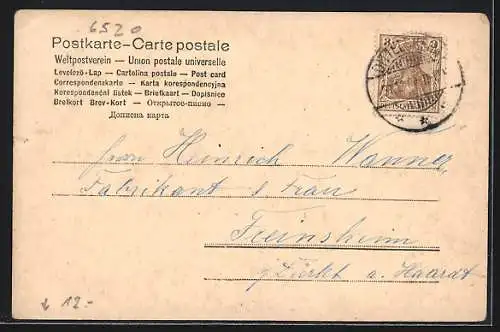 6520
Postkarte - Carte postale
Weltpostverein — Union postale universelle
Levelező-Lap — Cartolina postale — Post card
Correspondenskarte — Karta korespondencyjna
Korespondenční lístek — Briefkaart — Dopisnice
Brefkort Brev-Kort — Открытое-письмо —
Дописна карта
3 3
Heinrich Wanner,
Fabrikant & Frau
Freinsheim
a. Haardt
12.-